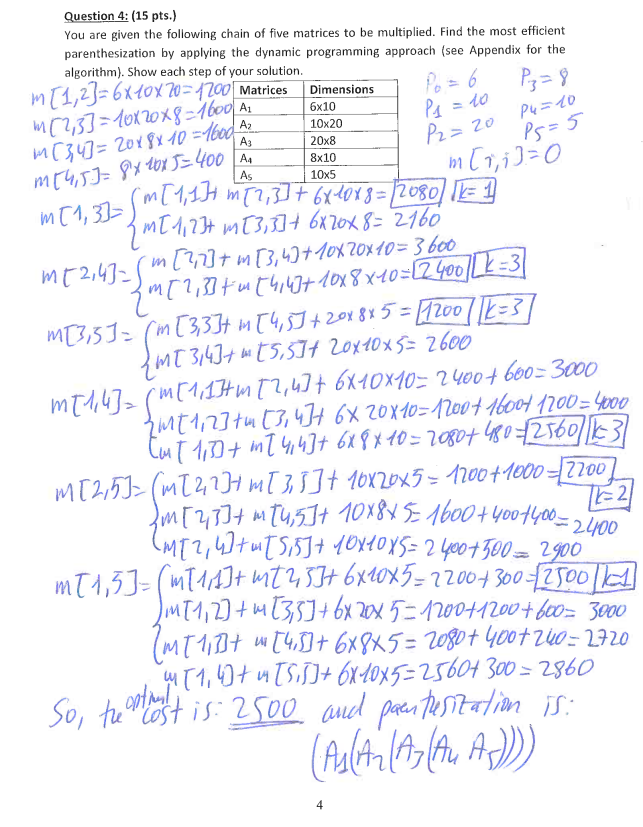 Question 4: (15 pts.)
You are given the following chain of five matrices to be multiplied. Find the most efficient
parenthesization by applying the dynamic programming approach (see Appendix for the
algorithm). Show each step of your solution.
Matrices Dimensions
A₁ 6x10
A₂ 10x20
A₃ 20x8
A₄ 8x10
A₅ 10x5
P₀ = 6 P₃ = 8
P₁ = 10 P₄ = 10
P₂ = 20 P₅ = 5
m[i,i]=0
m[1,2]=6x10x20=1200
m[2,3]=10x20x8=1600
m[3,4]=20x8x10=1600
m[4,5]=8x10x5=400
m[1,3]= { m[1,1]+ m[2,3]+ 6x10x8= 2080 k=1
m[1,2]+ m[3,3]+ 6x20x8= 2160
m[2,4]= { m[2,2]+ m[3,4]+10x20x10= 3600
m[2,3]+ m[4,4]+ 10x8x10= 2400 k=3
m[3,5]= { m[3,3]+ m[4,5]+20x8x5= 1200 k=3
m[3,4]+ m[5,5]+ 20x10x5= 2600
m[1,4]= { m[1,1]+ m[2,4]+ 6x10x10= 2400+600= 3000
m[1,2]+ m[3,4]+ 6x20x10=1200+1600+1200=4000
m[1,3]+ m[4,4]+ 6x8x10= 2080+480= 2560 k=3
m[2,5]= { m[2,2]+ m[3,5]+ 10x20x5 = 1200+1000= 2200 k=2
m[2,3]+ m[4,5]+ 10x8x5= 1600+400+400= 2400
m[2,4]+ m[5,5]+ 10x10x5= 2400+500= 2900
m[1,5]= { m[1,1]+ m[2,5]+ 6x10x5= 2200+300= 2500 k=1
m[1,2]+ m[3,5]+ 6x20x5= 1200+1200+600= 3000
m[1,3]+ m[4,5]+ 6x8x5= 2080+400+240=2720
m[1,4]+ m[5,5]+ 6x10x5=2560+300= 2860
So, the optimal cost is: 2500 and parenthesization is:
(A₁(A₂(A₃(A₄ A₅))))
4